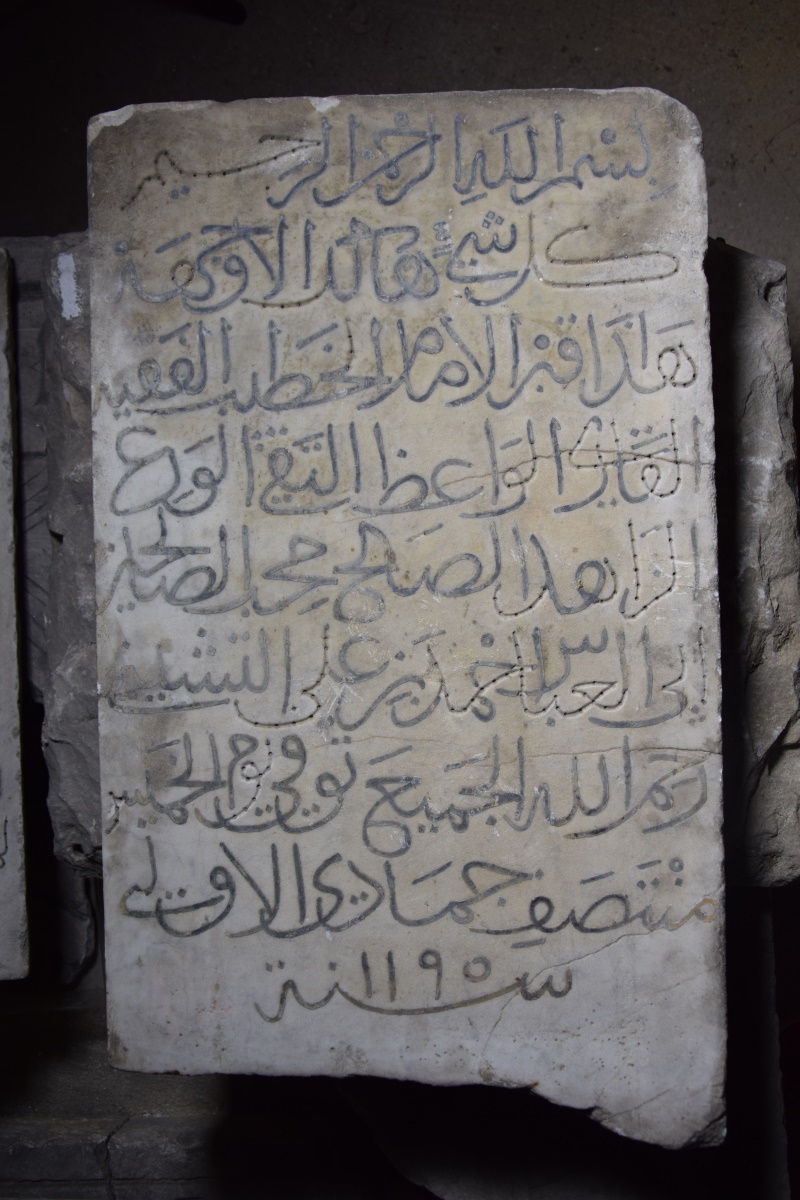 بسم الله الرحمن الرحيم
كل شيء هالك الا وجهه
هاذا قبر الامام الخطيب الفقيه
القارئ الواعظ التقي الورع
الزاهد الصالح محب الصالحين
ابي العباس احمد بن علي
رحم الله الجميع توفي يوم الخميس
منتصف جمادى الاولى
سنة ١١٩٥